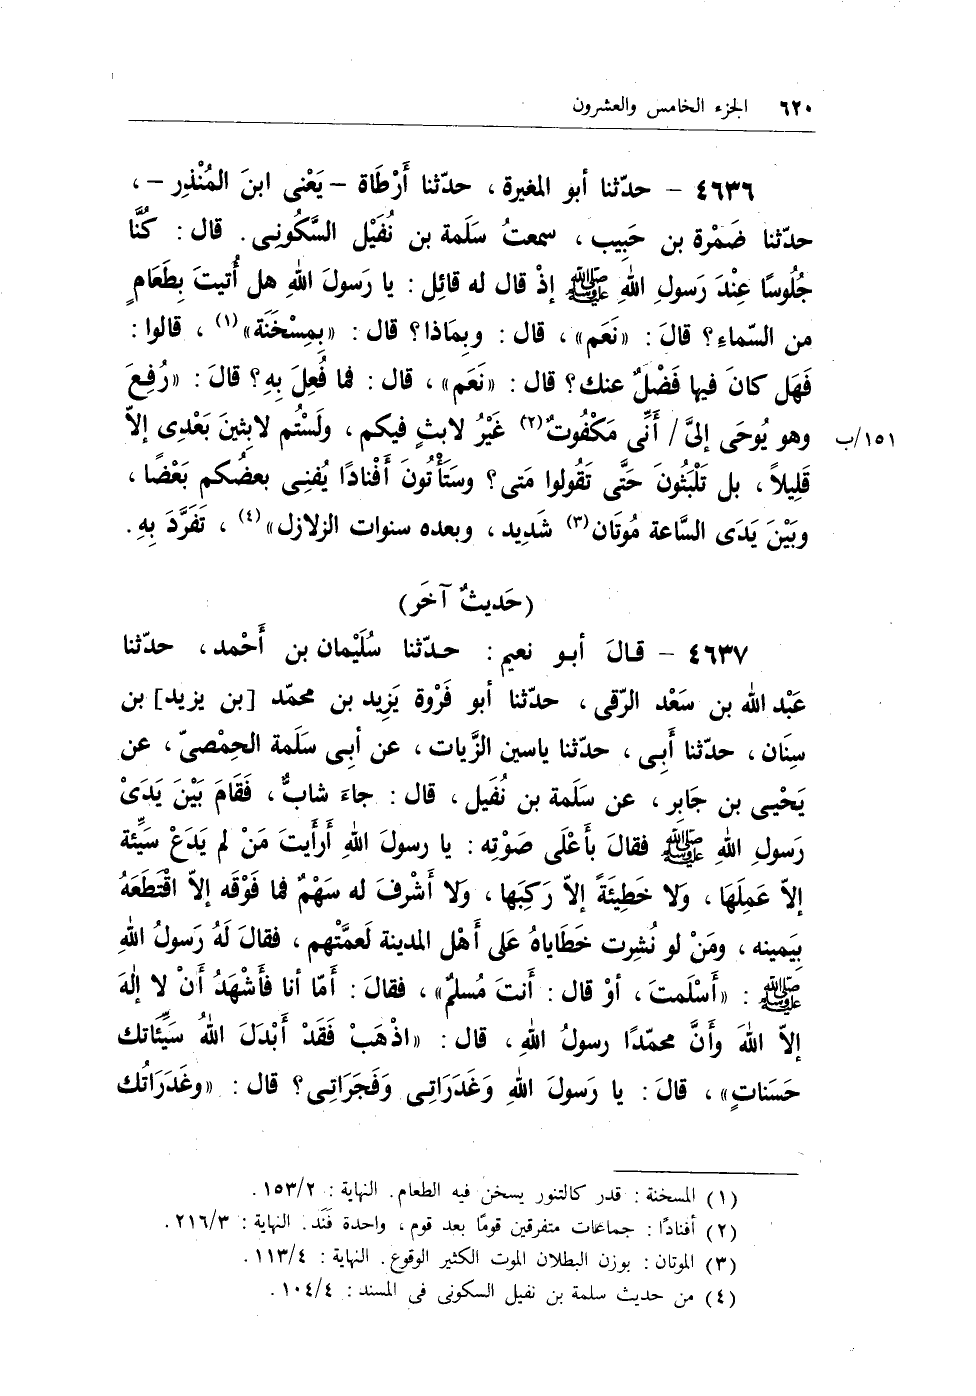 ٦٢٠ الجزء الخامس والعشرون
٤٦٣٦ – حدّثنا أبو المغيرة ، حدّثنا أَرْطَاة –يَعْنى ابنَ المُنْذِر – ،
حدّثنا ضَمْرة بن حَبِيب ، سمعتُ سَلَمة بن نُفَيْل السَّكُونِى . قال : كُنَّا
جُلُوسًا عِنْدَ رَسولِ اللهِ ﷺ إذْ قال له قائِل : يا رَسولَ اللهِ هل أُتيتَ بِطَعَامٍ
من السّماءِ؟ قالَ : «نَعَم» ، قال : وبِمَاذا؟ قال : «بِمِسْخَنَة»(١) ، قالوا :
فَهَل كانَ فيها فَضْلٌ عنك؟ قال : «نَعَم» ، قال : فما فُعِلَ بِهِ؟ قالَ : «رُفِعَ
وهو يُوحَى إلىَّ / أَنِّى مَكْفُوتٌ(٢) غَيْرُ لابثٍ فيكم ، ولَسْتُم لابِثينَ بَعْدِى إلاّ ١٥١/ب
قَلِيلاً ، بل تَلْبَثُونَ حَتَّى تَقُولوا مَتى؟ وسَتَأْتُونَ أَفْنادًا يُفنِى بعضُكم بَعْضًا ،
وبَيْنَ يَدَى السَّاعة مُوتَان(٣) شَدِيد ، وبعده سنوات الزلازل»(٤) ، تَفَرَّدَ بِهِ.
(حَديثٌ آخَر)
٤٦٣٧ – قـالَ أبـو نعيم : حـدّثنا سُلَيْمان بن أَحْمد ، حدّثنا
عَبْد الله بن سَعْد الرّقى ، حدّثنا أبو فَرْوة يَزِيد بن محمّد [بن يزيد] بن
سِنَان ، حدّثنا أَبِى ، حدّثنا ياسين الزَّيات ، عن أَبِى سَلَمة الحِمْصىّ ، عن
يَحْيى بن جَابِر ، عن سَلَمة بن نُفَيل ، قال : جاءَ شابٌّ ، فَقَامَ بَيْنَ يَدَىْ
رَسولِ اللهِ ﷺ فقالَ بأَعْلَى صَوْتِه : يا رسولَ اللهِ أَرأَيتَ مَنْ لم يَدَعْ سَيِّئة
إلاّ عَمِلَهَا ، وَلا خَطِيئَةً إلاّ رَكِبَها ، وَلا أَشْرفَ له سَهْمٌ فما فَوْقَه إلاّ اقْتَطَعَهُ
بِيَمينه ، ومَنْ لو نُشِرت خَطَاياهُ عَلى أَهْل المدينة لَعمَّتْهم ، فقالَ لَهُ رَسولُ اللهِ
ﷺ : «أَسْلَمتَ ، أوْ قال : أَنتَ مُسلمٌ» ، فقالَ : أمّا أنا فأَشْهَدُ أنْ لا إلهَ
إلاّ اللهَ وأَنَّ محمّدًا رسولُ اللهِ ، قال : «اذْهَبْ فَقَدْ أَبْدَلَ اللهُ سَيِّئَاتك
حَسَناتٍ» ، قالَ : يا رَسولَ اللهِ وَغَدَرَاتِى وَفَجَرَاتِى؟ قال : «وغَدَرَاتُك
(١) المسخنة : قدر كالتنور يسخن فيه الطعام. النهاية : ١٥٣/٢ .
(٢) أفنادًا : جماعات متفرقين قومًا بعد قوم ، واحدة فَنَد . النهاية : ٢١٦/٣ .
(٣) الموتان : بوزن البطلان الموت الكثير الوقوع. النهاية : ١١٣/٤ .
(٤) من حديث سلمة بن نفيل السكونى فى المسند : ١٠٤/٤ .